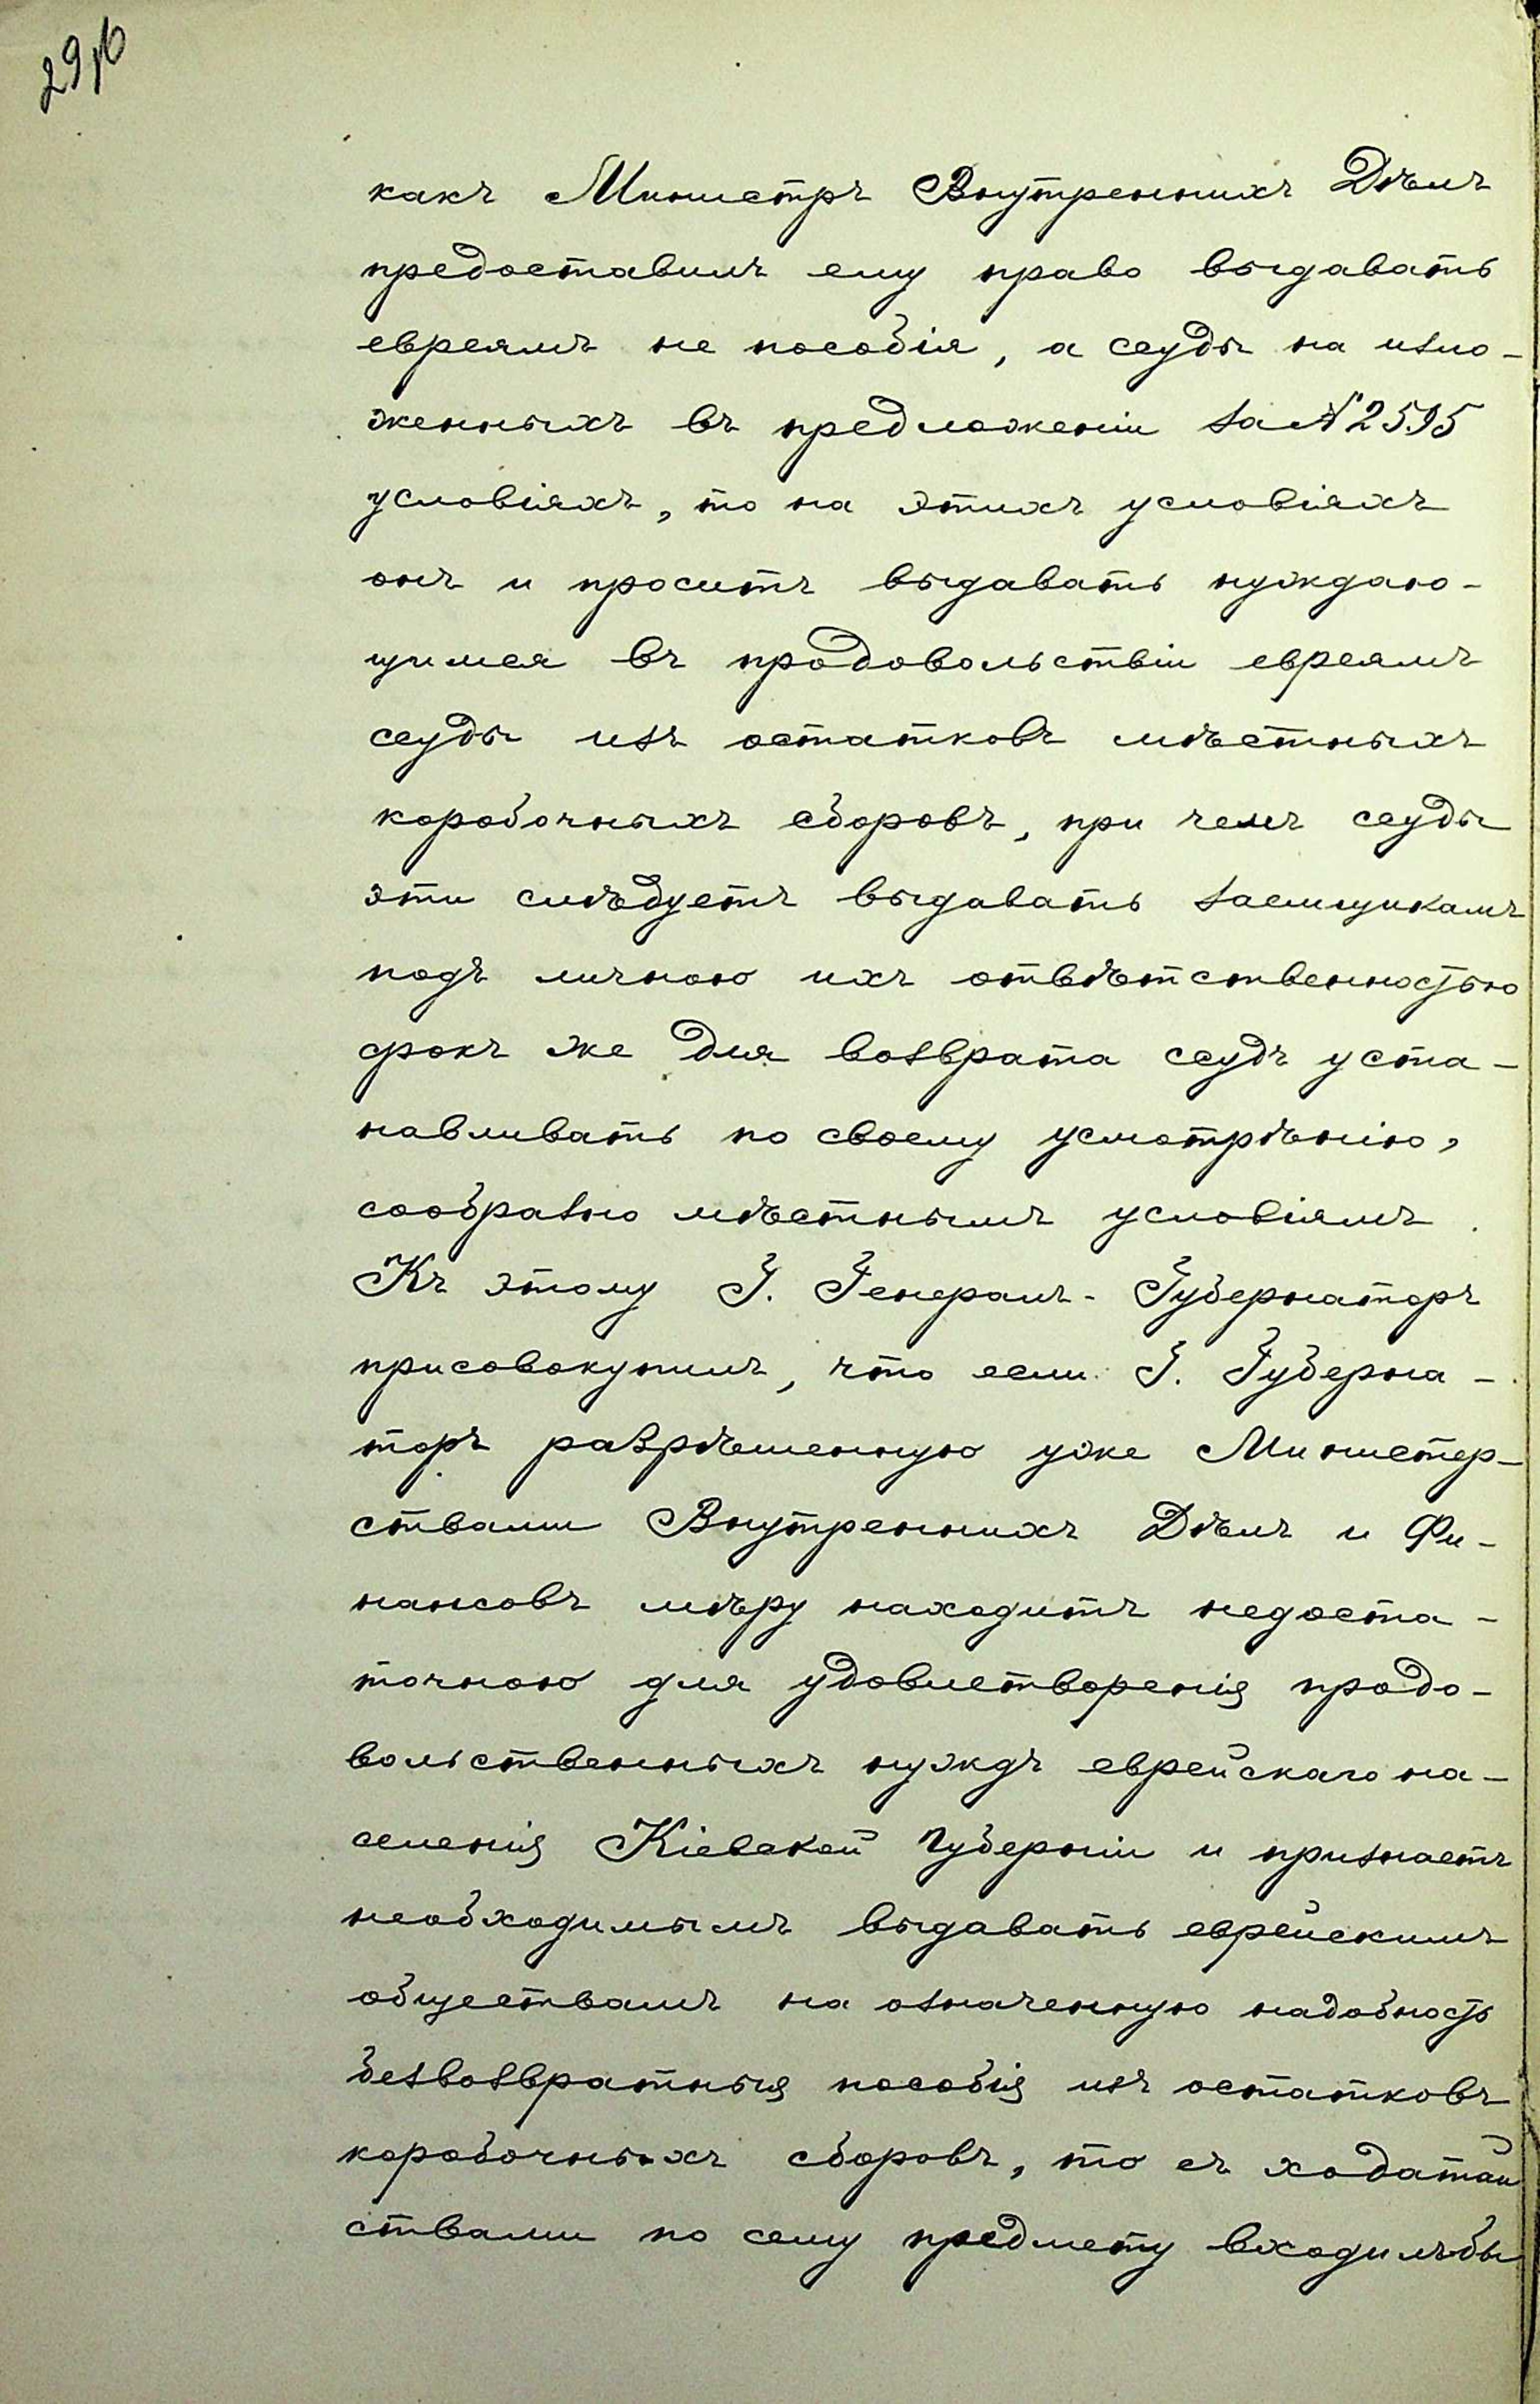 29 об
какъ Министръ Внутреннихъ Дѣлъ
предоставилъ ему право выдавать
евреямъ не пособія, а ссуды на изло-
женныхъ въ предложеніи за № 2595
условіяхъ, то на этихъ условіяхъ
онъ и проситъ выдавать нуждаю-
щимся въ продовольствіи евреямъ
ссуды изъ остатковъ мѣстныхъ
коробочныхъ сборовъ, при чемъ ссуды
эти слѣдуетъ выдавать заемщикамъ
подъ личною ихъ отвѣтственностью
срокъ же для возврата ссудъ уста-
навливать по своему усмотрѣнію,
сообразно мѣстнымъ условіямъ.
Къ этому Г. Генералъ-Губернаторъ
присовокупилъ, что если Г. Губерна-
торъ разрѣшенную уже Министер-
ствами Внутреннихъ Дѣлъ и Фи-
нансовъ мѣру находитъ недоста-
точною для удовлетворенія продо-
вольственныхъ нуждъ еврейскаго на-
селенія Кіевской Губерніи и признаетъ
необходимымъ выдавать еврейскимъ
обществамъ на означенную надобность
безвозвратныя пособія изъ остатковъ
коробочныхъ сборовъ, то съ ходатай
ствами по сему предмету входилъ бы